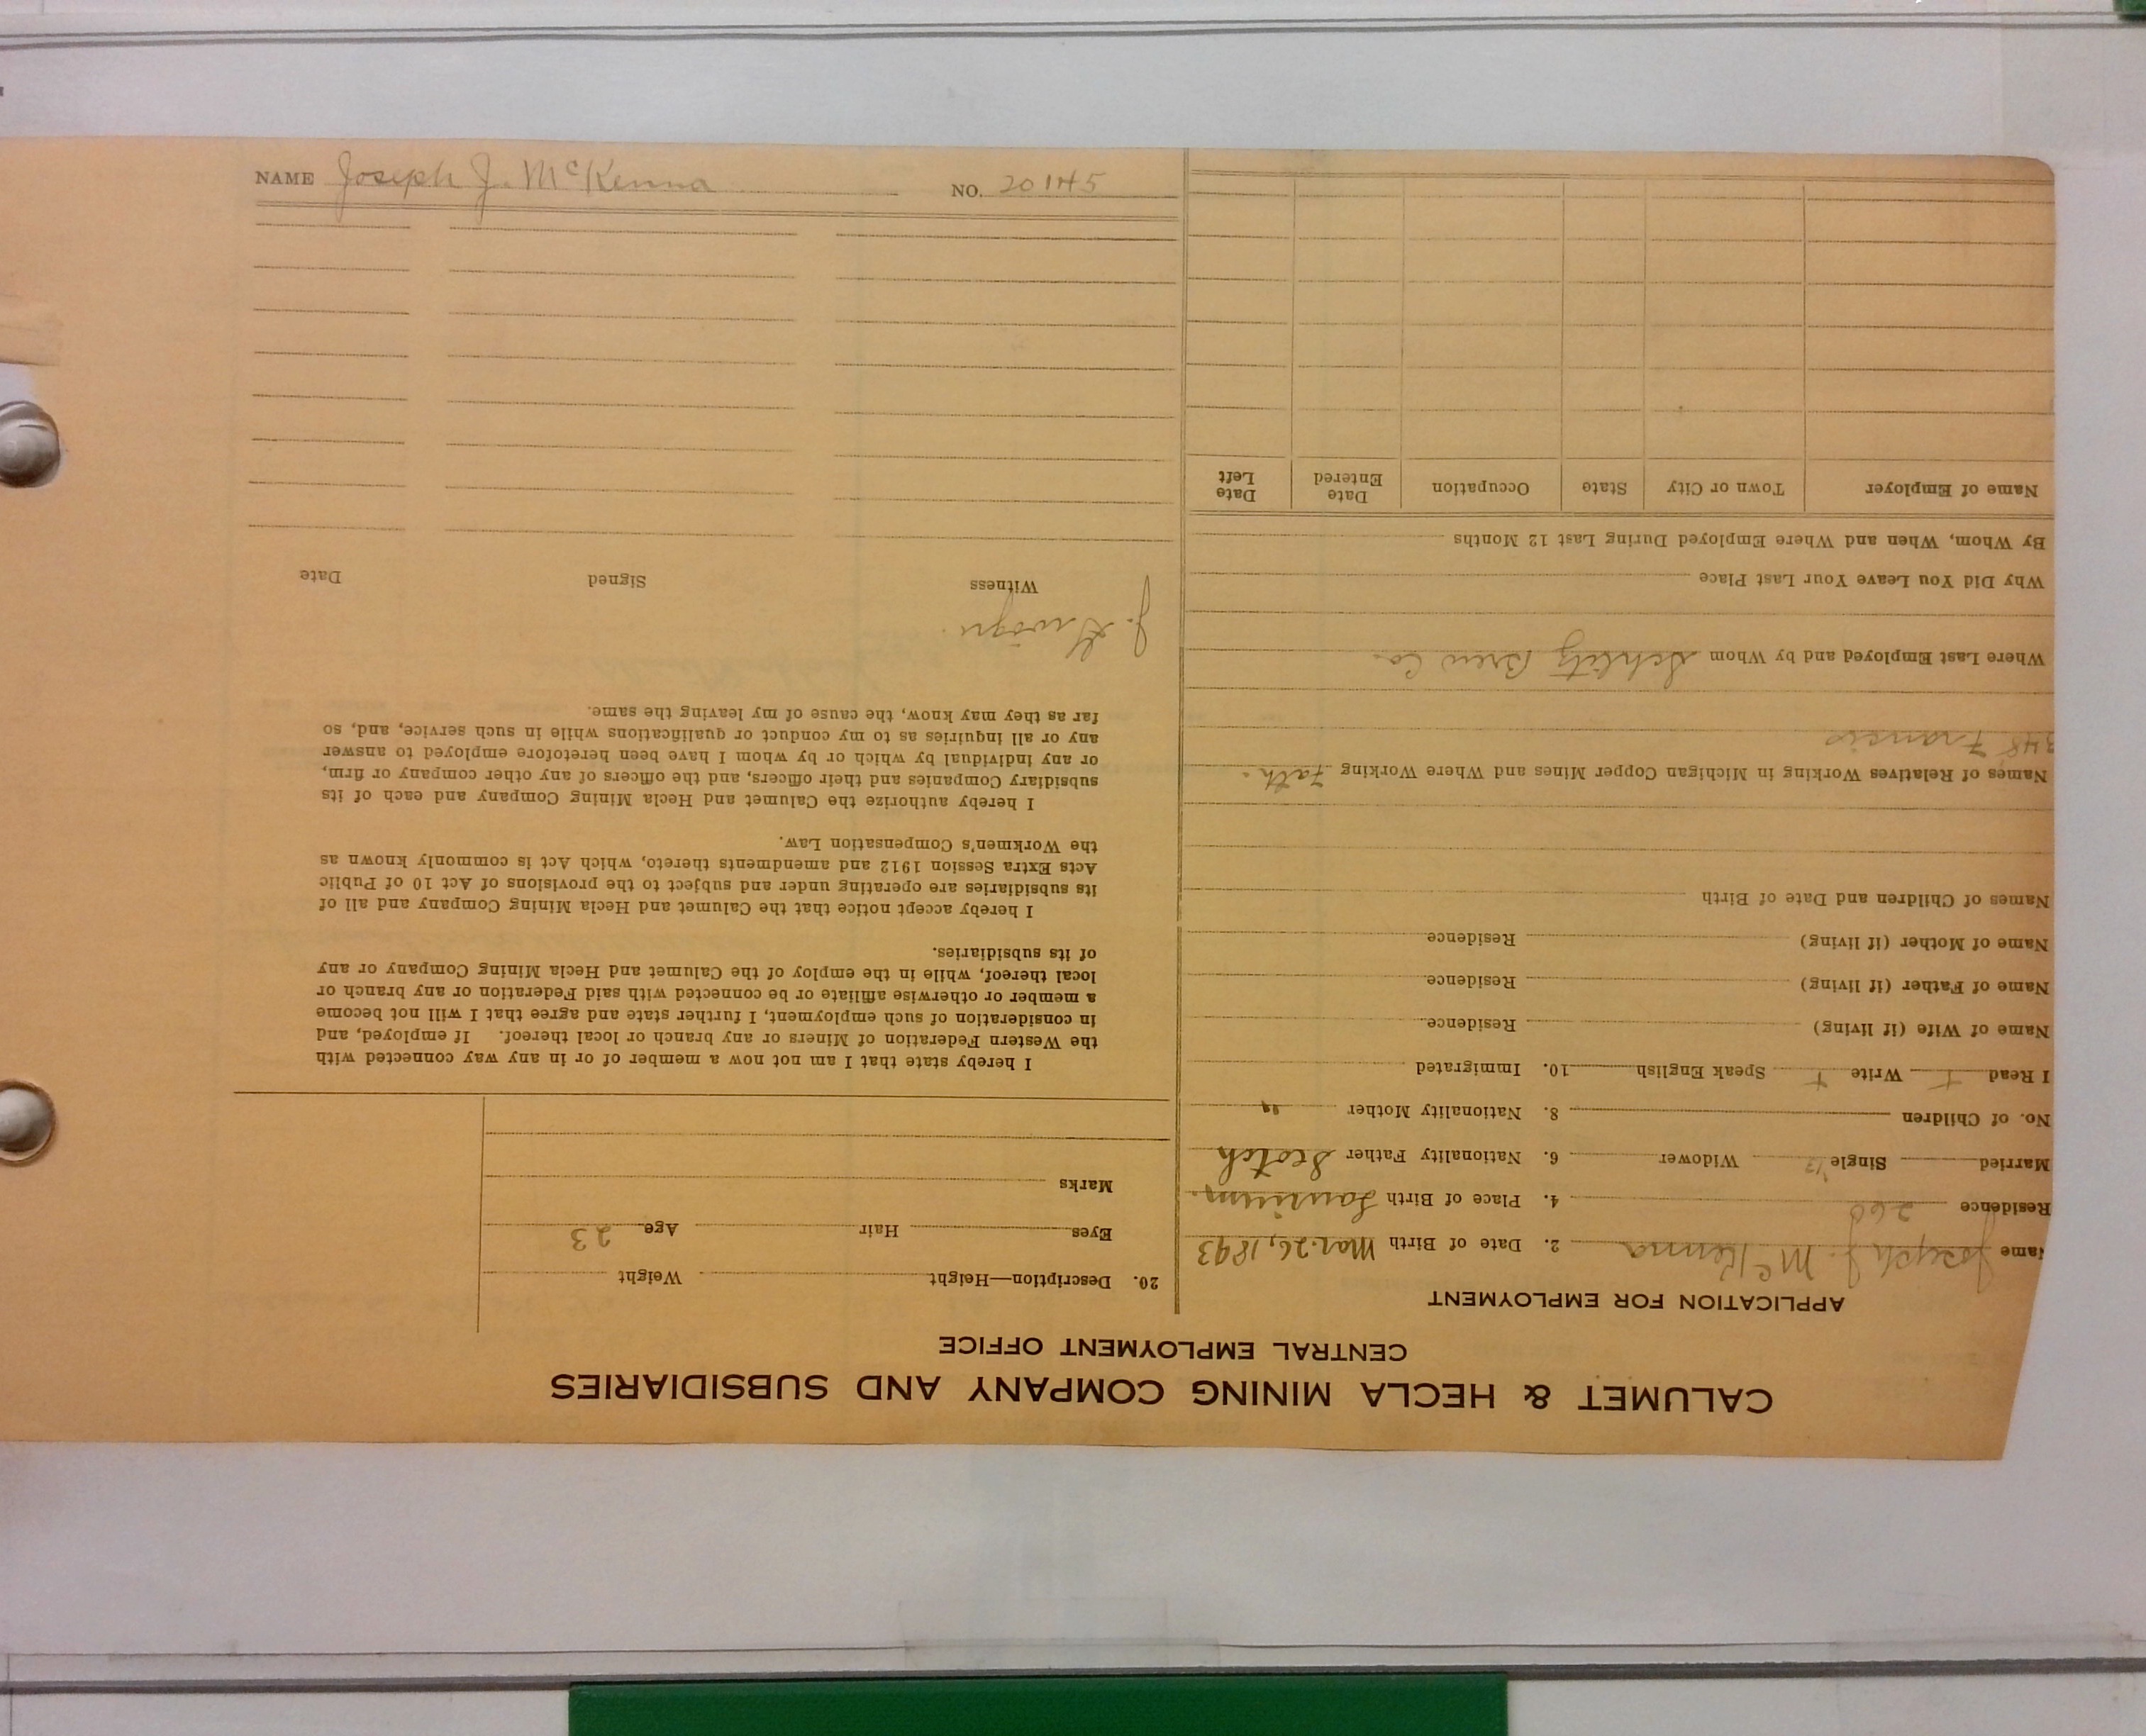 CALUMET & HECLA MINING COMPANY AND SUBSIDIARIES
CENTRAL EMPLOYMENT OFFICE
APPLICATION FOR EMPLOYMENT
ame Joseph J. McKenna 2. Date of Birth Mar. 26, 1893
Residence 260 4. Place of Birth Laurium.
Married Single Widower 6. Nationality Father Scotch
No. of Children 8. Nationality Mother "
I Read + Write + Speak English 10. Immigrated
Name of Wife (if living) Residence
Name of Father (if living) Residence
Name of Mother (if living) Residence
Names of Children and Date of Birth
Names of Relatives Working in Michigan Copper Mines and Where Working Fath.
348 Francis
Where Last Employed and by Whom Schlitz Brew Co.
Why Did You Leave Your Last Place
By Whom, When and Where Employed During Last 12 Months
Name of Employer Town or City State Occupation Date Entered Date Left
20. Description—Height Weight
Eyes Hair Age 23
Marks
I hereby state that I am not now a member of or in any way connected with
the Western Federation of Miners or any branch or local thereof. If employed, and
in consideration of such employment, I further state and agree that I will not become
a member or otherwise affiliate or be connected with said Federation or any branch or
local thereof, while in the employ of the Calumet and Hecla Mining Company or any
of its subsidiaries.
I hereby accept notice that the Calumet and Hecla Mining Company and all of
its subsidiaries are operating under and subject to the provisions of Act 10 of Public
Acts Extra Session 1912 and amendments thereto, which Act is commonly known as
the Workmen's Compensation Law.
I hereby authorize the Calumet and Hecla Mining Company and each of its
subsidiary Companies and their officers, and the officers of any other company or firm,
or any individual by which or by whom I have been heretofore employed to answer
any or all inquiries as to my conduct or qualifications while in such service, and, so
far as they may know, the cause of my leaving the same.
J.
Witness Signed Date
NAME Joseph J. McKenna NO. 20145